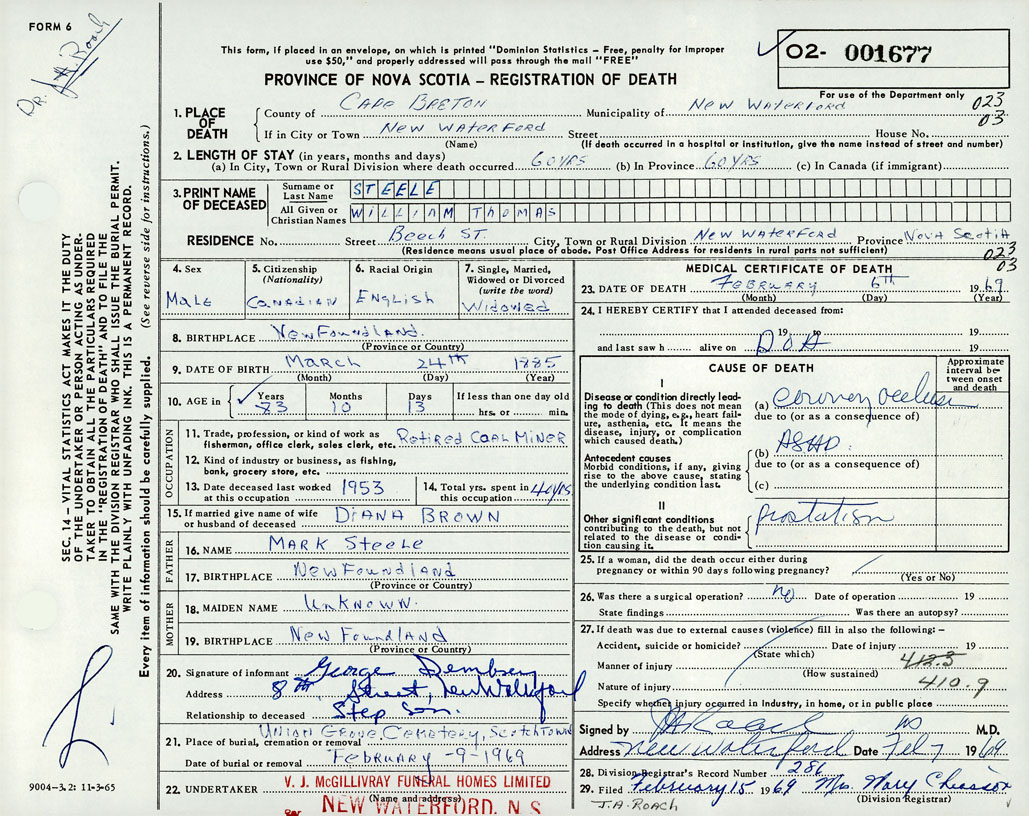 FORM 6
DR. J.A. Roach
This form, if placed in an envelope, on which is printed "Dominion Statistics – Free, penalty for improper
use $50," and properly addressed will pass through the mail "FREE"
PROVINCE OF NOVA SCOTIA – REGISTRATION OF DEATH
✓ O2- 001677
For use of the Department only
023
03
1. PLACE OF DEATH
County of CAPE BRETON Municipality of NEW WATERFORD
If in City or Town NEW WATERFORD Street House No.
(Name) (If death occurred in a hospital or institution, give the name instead of street and number)
2. LENGTH OF STAY (in years, months and days)
(a) In City, Town or Rural Division where death occurred 60 YRS (b) In Province 60 YRS (c) In Canada (if immigrant)
3. PRINT NAME OF DECEASED
Surname or Last Name STEELE
All Given or Christian Names WILLIAM THOMAS
RESIDENCE No. Street Beech ST. City, Town or Rural Division NEW WATERFORD Province NOVA SCOTIA
(Residence means usual place of abode. Post Office Address for residents in rural parts not sufficient)
023
03
4. Sex
MALE
5. Citizenship
(Nationality)
CANADIAN
6. Racial Origin
ENGLISH
7. Single, Married,
Widowed or Divorced
(write the word)
WIDOWED
8. BIRTHPLACE NEWFOUNDLAND.
(Province or Country)
9. DATE OF BIRTH MARCH 24TH 1885
(Month) (Day) (Year)
10. AGE in
✓ Years 83
Months 10
Days 13
If less than one day old
hrs. or min.
OCCUPATION
11. Trade, profession, or kind of work as
fisherman, office clerk, sales clerk, etc. Retired COAL MINER
12. Kind of industry or business, as fishing,
bank, grocery store, etc.
13. Date deceased last worked
at this occupation 1953
14. Total yrs. spent in
this occupation 40 YRS
15. If married give name of wife
or husband of deceased DIANA BROWN
FATHER
16. NAME MARK STEELE
17. BIRTHPLACE NEWFOUNDLAND
(Province or Country)
MOTHER
18. MAIDEN NAME UNKNOWN.
19. BIRTHPLACE NEW FOUNDLAND
(Province or Country)
20. Signature of informant George
Address 8th Street, New Waterford
Relationship to deceased Step Son.
21. Place of burial, cremation or removal UNION GROVE CEMETERY, SCOTCHTOWN
Date of burial or removal FEBRUARY -9-1969
22. UNDERTAKER V. J. McGILLIVRAY FUNERAL HOMES LIMITED
(Name and address)
NEW WATERFORD, N. S
per
MEDICAL CERTIFICATE OF DEATH
23. DATE OF DEATH FEBRUARY 6th 1969
(Month) (Day) (Year)
24. I HEREBY CERTIFY that I attended deceased from:
19 19
and last saw h alive on DOA 19
CAUSE OF DEATH
Approximate
interval be-
tween onset
and death
I
Disease or condition directly lead-
ing to death (This does not mean
the mode of dying, e.g., heart fail-
ure, asthenia, etc. It means the
disease, injury, or complication
which caused death.)
(a) coronary occlusion
due to (or as a consequence of)
Antecedent causes
Morbid conditions, if any, giving
rise to the above cause, stating
the underlying condition last.
(b) ASHD.
due to (or as a consequence of)
(c)
II
Other significant conditions
contributing to the death, but not
related to the disease or condi-
tion causing it.
25. If a woman, did the death occur either during
pregnancy or within 90 days following pregnancy?
(Yes or No)
26. Was there a surgical operation? no Date of operation 19
State findings Was there an autopsy?
27. If death was due to external causes (violence) fill in also the following: –
Accident, suicide or homicide? Date of injury 19
(State which)
412.3
Manner of injury
(How sustained)
410.9
Nature of injury
Specify whether injury occurred in Industry, in home, or in public place
Signed by JA Roach M.D.
Address New Waterford Date Feb 7 1969
28. Division Registrar's Record Number 286
29. Filed February 15 1969 Mrs. Mary Chiasson
(Division Registrar)
J.A. ROACH
SEC. 14 – VITAL STATISTICS ACT MAKES IT THE DUTY
OF THE UNDERTAKER OR PERSON ACTING AS UNDER-
TAKER TO OBTAIN ALL THE PARTICULARS REQUIRED
IN THE "REGISTRATION OF DEATH" AND TO FILE THE
SAME WITH THE DIVISION REGISTRAR WHO SHALL ISSUE THE BURIAL PERMIT.
WRITE PLAINLY WITH UNFADING INK. THIS IS A PERMANENT RECORD.
Every item of information should be carefully supplied. (See reverse side for instructions.)
9004-3.2: 11-3-65